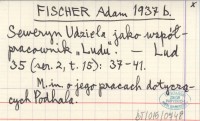 FISCHER Adam 1937 b.
Seweryn Udziela jako współ-
pracownik „Ludu". — Lud
35 (ser. 2, t. 15): 37-41.
M.in o jego pracach dotyczą-
cych Podhala.